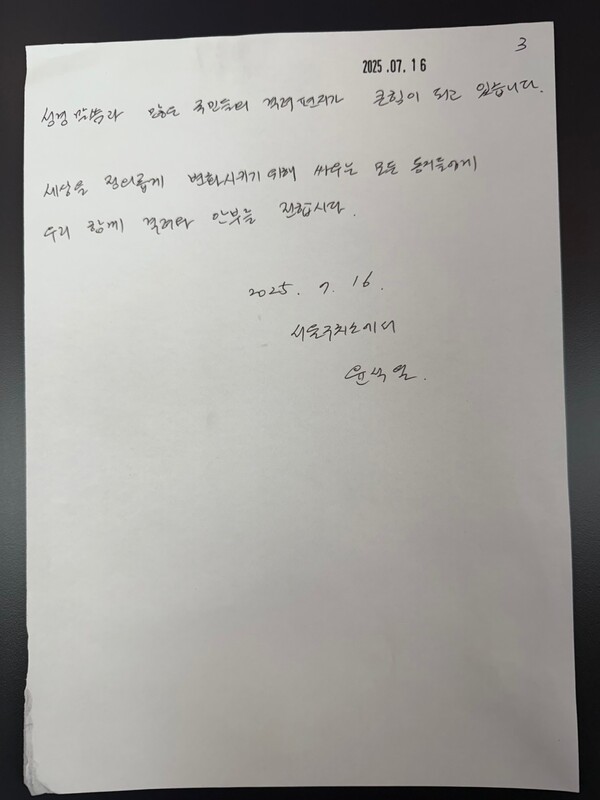 3
2025.07.16
성경 말씀과 많은 국민들의 격려편지가 큰힘이 되고 있습니다.
세상을 정의롭게 변화시키기 위해 싸우는 모든 동지들에게
우리 함께 격려와 안부를 전합시다.
2025. 7. 16.
서울구치소에서
윤석열.